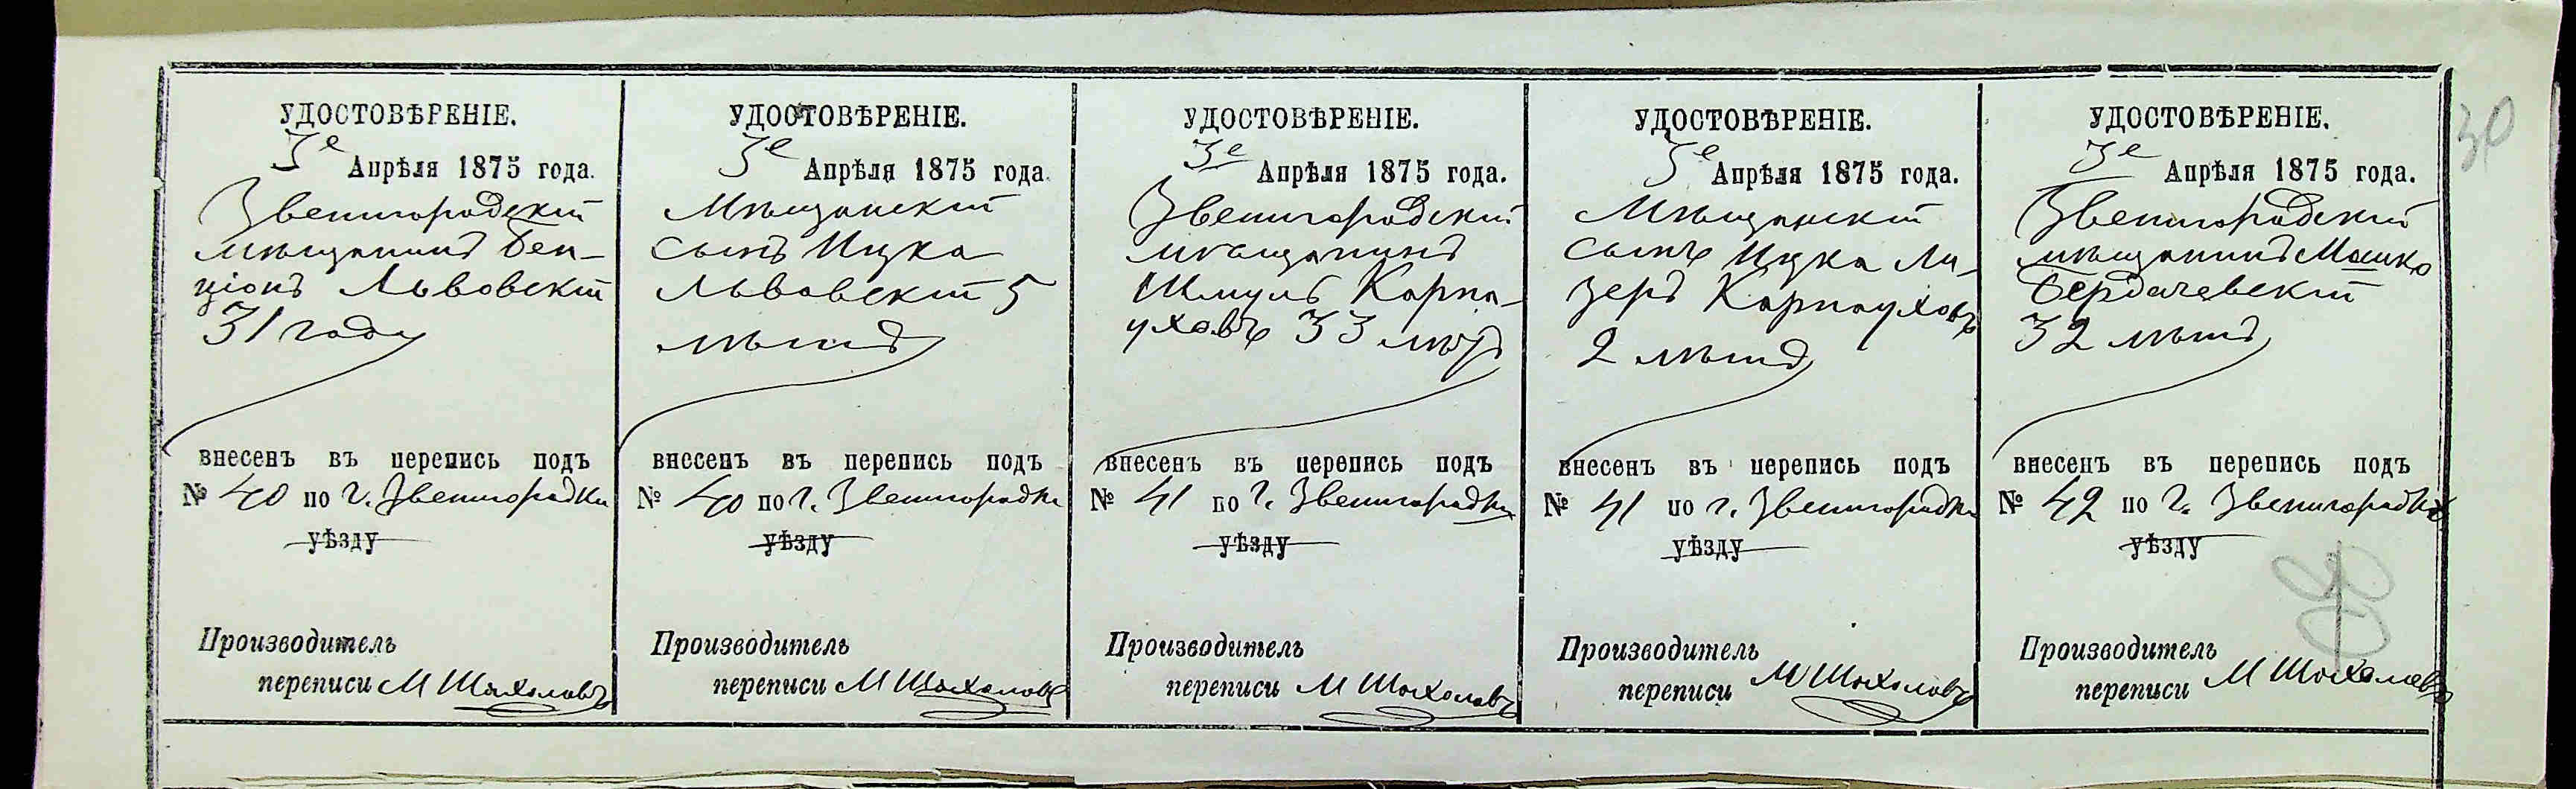 УДОСТОВѢРЕНІЕ.
3е Апрѣля 1875 года.
Звенигородскій
мѣщанинъ Бен-
ціонъ Львовскій
31 году
внесенъ въ перепись подъ
№ 40 по г. Звенигородки
уѣзду
Производитель
переписи М Шахоловъ
УДОСТОВѢРЕНІЕ.
3е Апрѣля 1875 года.
Мѣщанскій
сынъ Ицка
Львовскій 5
лѣтъ
внесенъ въ перепись подъ
№ 40 по г. Звенигородки
уѣзду
Производитель
переписи М Шахоловъ
УДОСТОВѢРЕНІЕ.
3е Апрѣля 1875 года.
Звенигородскій
мѣщанинъ
Шмуль Карпа-
уховъ 33 лѣтъ
внесенъ въ перепись подъ
№ 41 по г. Звенигородки
уѣзду
Производитель
переписи М Шахоловъ
УДОСТОВѢРЕНІЕ.
3е Апрѣля 1875 года.
Мѣщанскій
сынъ Ицка Ли-
зеръ Карпауховъ
2 лѣтъ
внесенъ въ перепись подъ
№ 41 по г. Звенигородки
уѣзду
Производитель
переписи М Шахоловъ
УДОСТОВѢРЕНІЕ.
3е Апрѣля 1875 года.
Звенигородскій
мѣщанинъ Мошко
Бердачевскій
32 лѣтъ
внесенъ въ перепись подъ
№ 42 по г. Звенигородки
уѣзду
Производитель
переписи М Шахоловъ
30